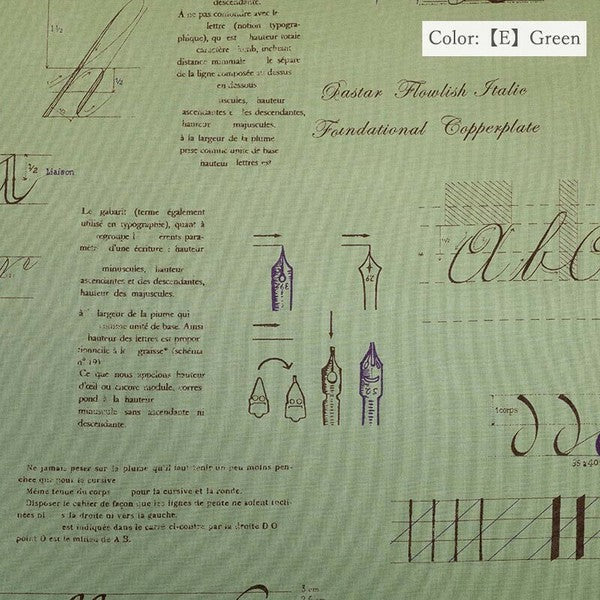 Color:【E】Green
descendante.
A ne pas confondre avec le
lettre (notion typogra-
phique), qu est hauteur totale
caractère
distance le sépare
de la ligne composée au dessus
en dessous
hauteur
ascendantes et les descendantes,
hauteur majuscules.
à la largeur de la plume
prise comme unité de base
hauteur lettres est
1½
½
Flowlish Italic
Foundational Copperplate
½
Liaison
Le gabarit (terme également
utilisé en typographie), quant à
regroupe érents para-
mètr d'une écriture : hauteur
minuscules, hauteur
ascendantes et des descendantes,
hauteur des majuscules.
à largeur de la plume qui
comme unité de base. Ainsi
hauteur des lettres est propor
tionnelle à graisse" (schéma
n° 19)
Ce que nous appelons hauteur
d'œil ou encore module, corres
pond à la hauteur
minuscule sans ascendante ni
descendante.
abc
1corps
35 à 40
Ne jamais peser sur la plume qu'il faut tenir un peu moins pen-
chée que pour la cursive
Même tenue du corps pour la cursive et la ronde.
Disposer le cahier de façon que les lignes de pente ne soient incli-
nées ni à la droite ni vers la gauche.
est indiquée dans le carré ci-contre par la droite D O
point O est le milieu de A B.
3 cm